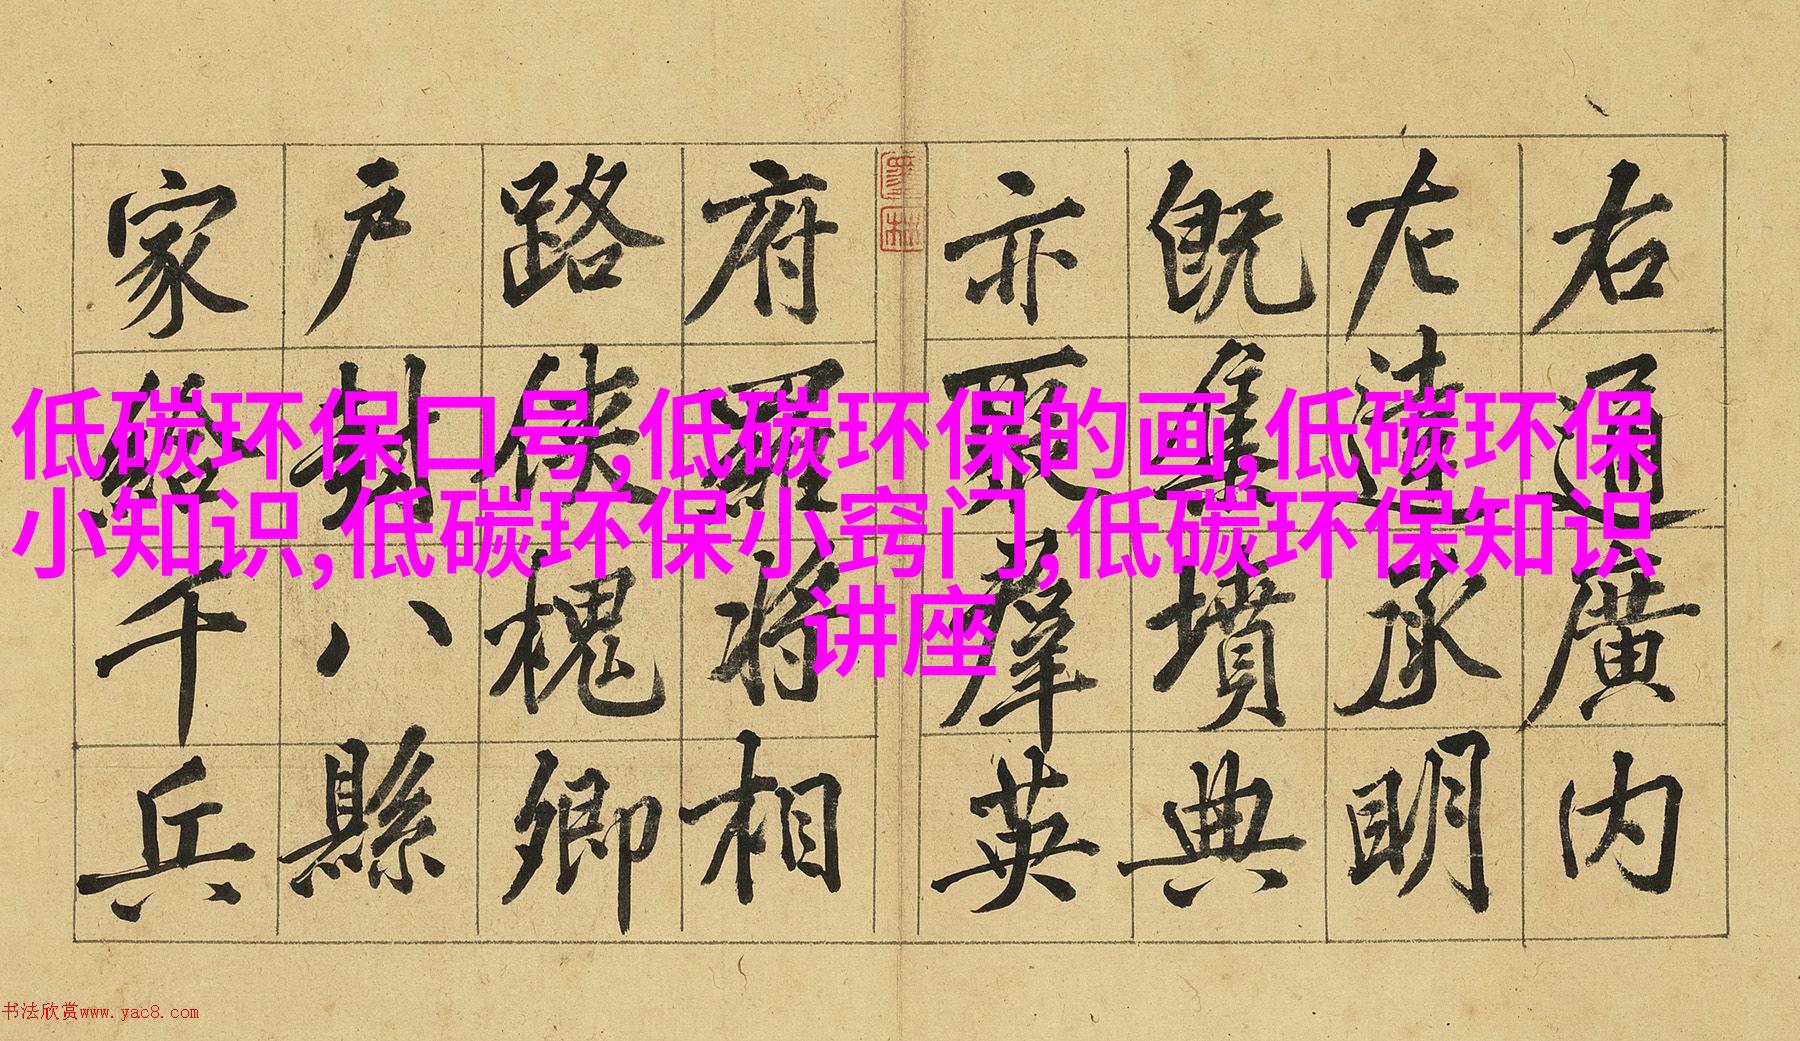 右通廣内
左達承明
既集墳典
亦聚羣英
府羅将相
路俠槐卿
户封八縣
家給千兵
低碳环保口号,低碳环保的画,低碳环保
小知识,低碳环保小窍门,低碳环保知识
讲座
书法欣赏www.yac8.com